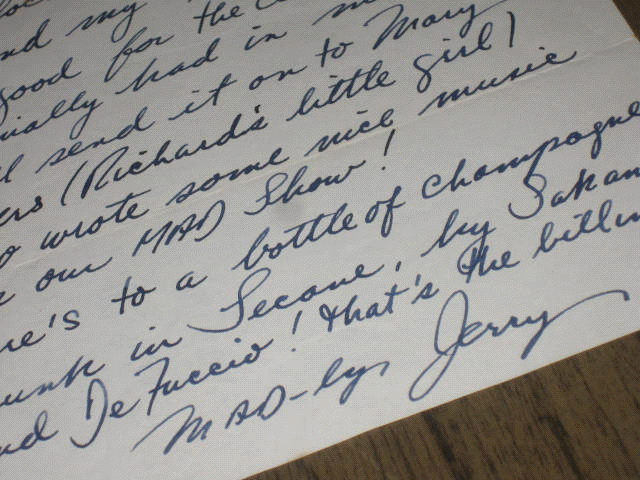 nd my
good for the
ually had in
ll send it on to Mary
ers (Richard's little girl)
o wrote some nice music
our MAD Show!
re's to a bottle of champagne
unk in Secane, by Sakan
nd De Fuccio! That's the billin
MAD-ly, Jerry